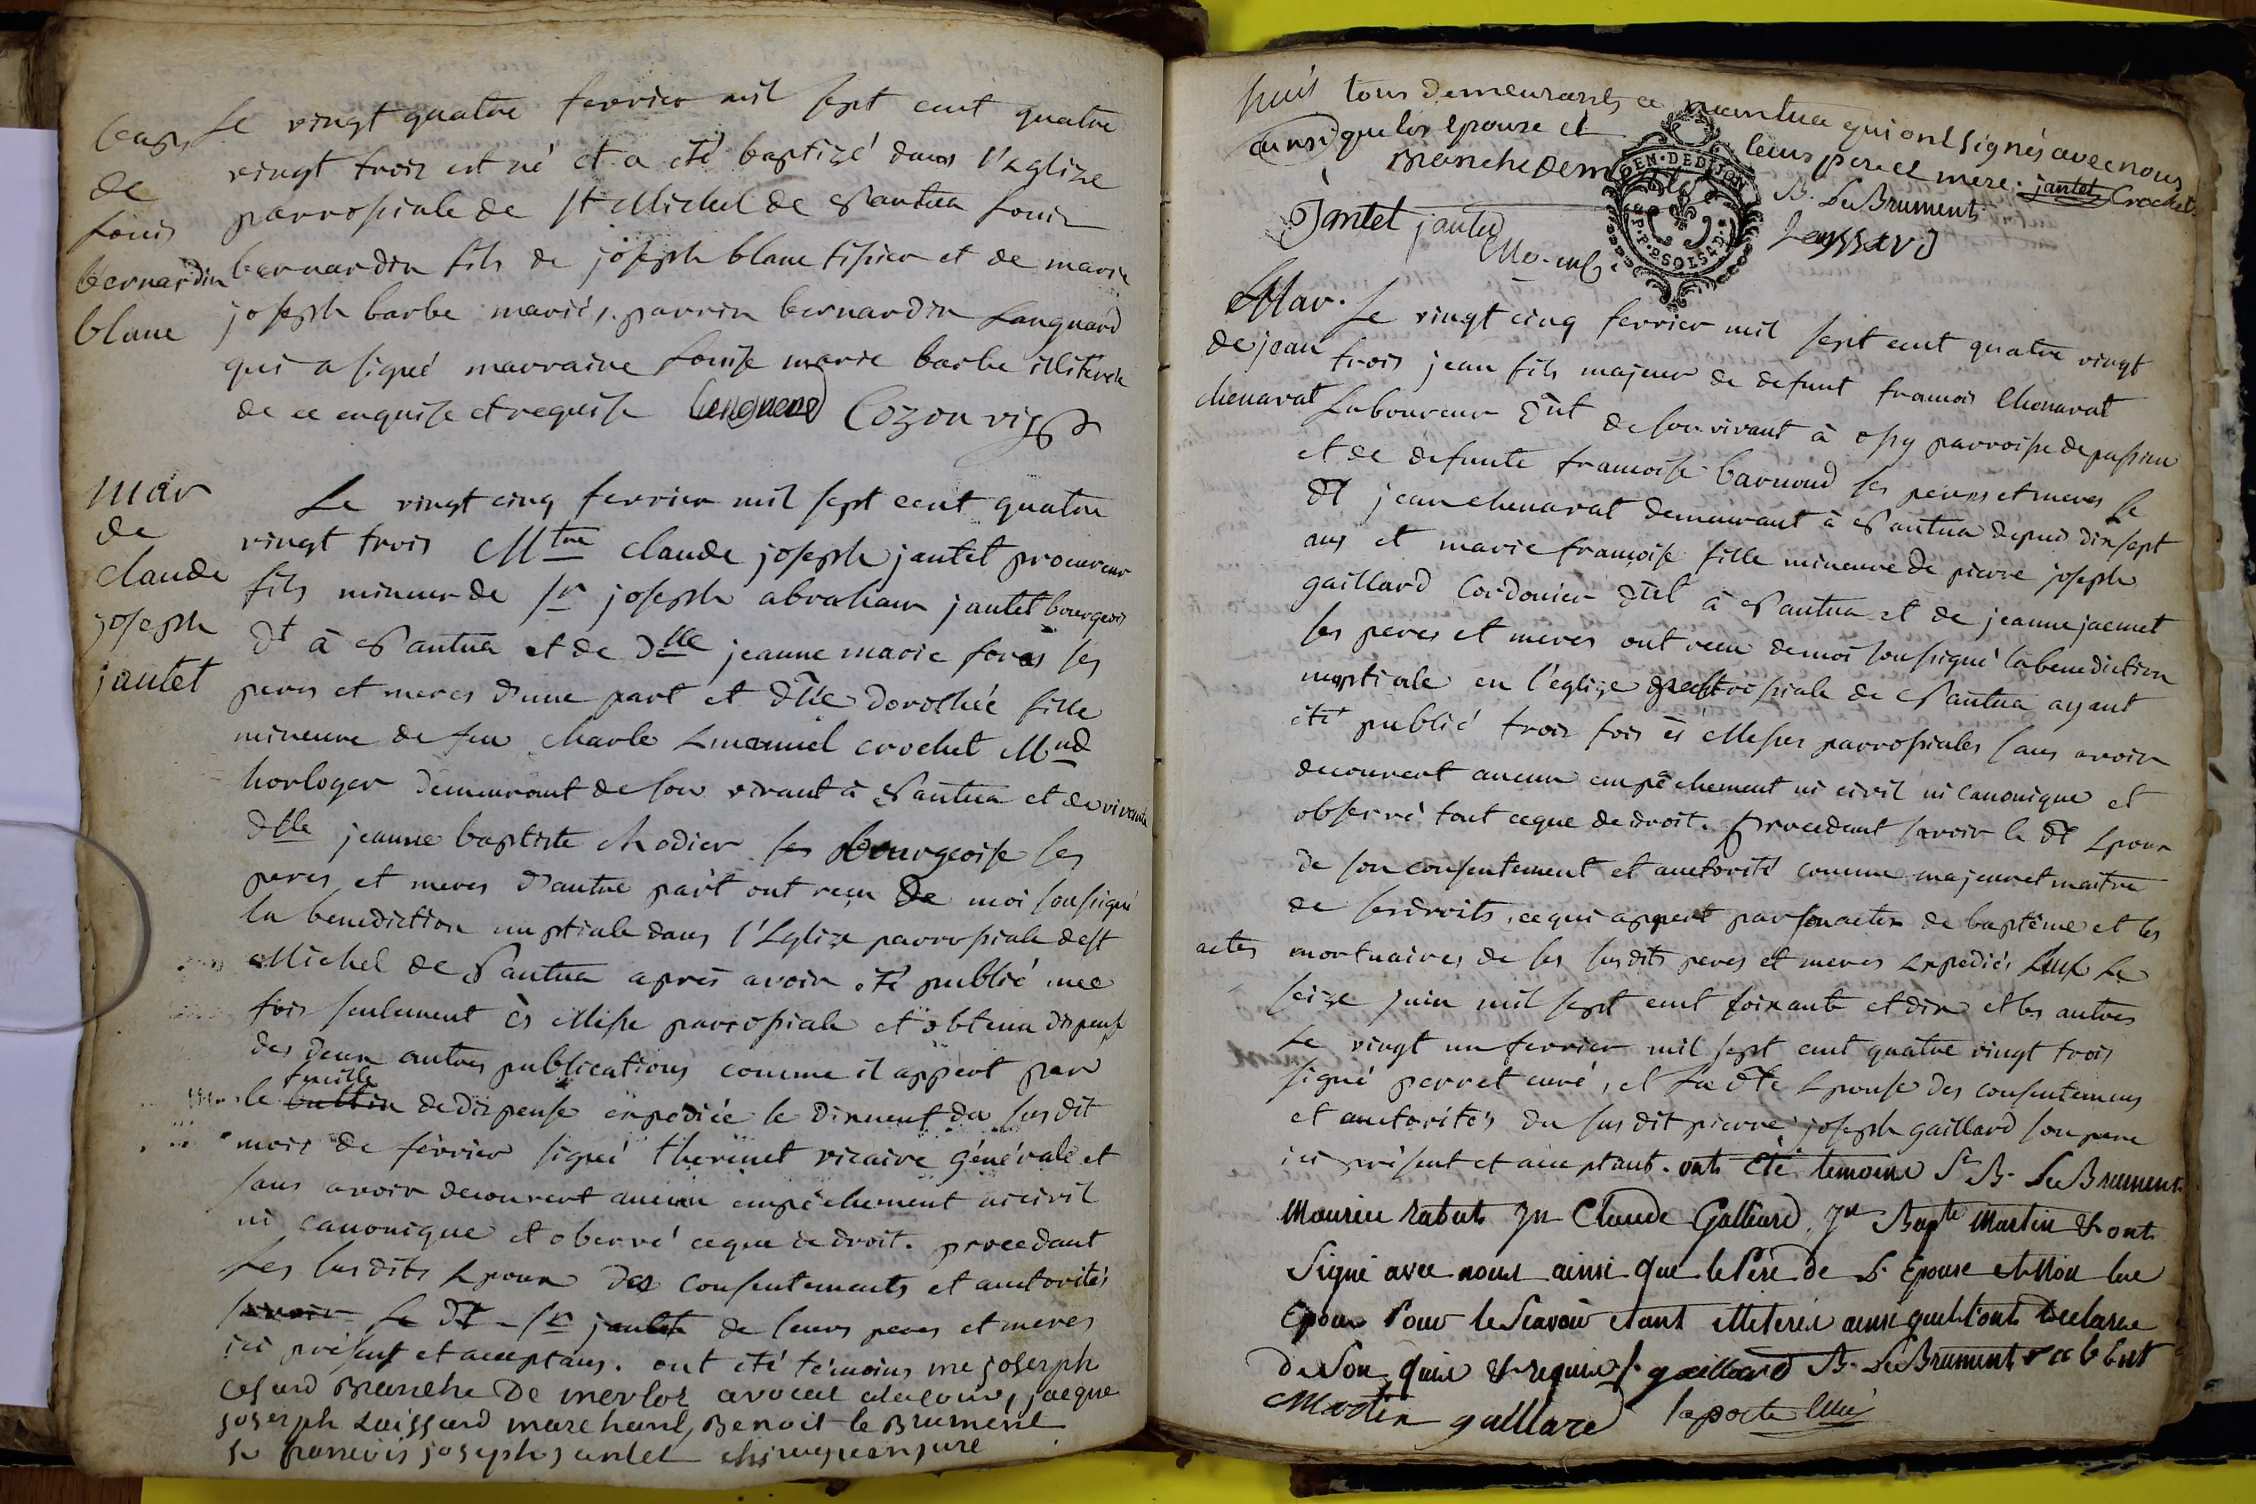 bap
de
Louis
bernardin
blanc
Le vingt quatre fevrier mil sept cent quatre
vingt trois est né et a été baptizé dans l'Eglize
parrossiale de St Michel de Nantua Louis
bernardin fils de joseph blanc tissier et de marie
joseph barbe mariés, parrin bernardin Languard
qui a signé marraine Louise marie barbe illiterée
de ce enquise et requise Cozon
mar
de
claude
joseph
jantet
Le vingt cinq fevrier mil sept cent quatre
vingt trois Mtre claude joseph jantet procureur
fils mineur de sr joseph abraham jantet bourgeois
dt à Nantua et de dlle jeanne marie foras ses
peres et meres d'une part et dlle Dorothée fille
mineure de feu charle Emanuel crochet Mnd
horloger demeurant de son vivant à Nantua et de vivante
dlle jeanne baptiste Rodier ses Bourgeoise ses
peres et meres d'autre part ont reçu De moi soussigné
la benediction nuptiale dans l'Eglize parrossiale de st
Michel de Nantua aprés avoir été publié une
fois seulement ès Messe parrossiale et obtenu dispense
des deux autres publications comme il appert par
feuille
le bultin de dispense expediée le dixneuf du susdit
mois de février signé therinet vicaire générale et
sans avoir decouvert aucun empêchement ni civil
ni canonique et oberré ce que de droit. procedant
Les susdits Epoux des consentements et auctorités
savoir Le dt Sr jantet de leurs peres et meres
ici présent et acceptans. ont été témoins me joserph
Cesard Branche De merloz avocat alacour, jacque
joserph Laissard marchant, Benoit le Brument
sr francois joseph jantet chirurgien juré
tous demeurants a nantua qui ont signés avec nous
ainsi que les epouse et leurs pere et mere. jantet Crochet
Branche Dem B. LeBrument
GEN. DE DIJON
Jantet jantet Leyssard
Mar.
de jean
chenavat
Le vingt cinq fevrier mil sept cent quatre vingt
trois jean fils majeur de defunt francois Chenavat
Laboureur de son vivant à parroisse de
et de défunte francoise barnoud ses peres et meres le
dt jean chenavat demeurant à Nantua depuis dixsept
ans et marie françoise fille mineure de pierre joseph
gaillard Cordonier à Nantua et de jeanne jacmet
ses peres et meres ont recu de moi soussigné la benediction
nuptiale en l'église parrossiale de Nantua ayant
été publié trois fois ès Messes parrossiales sans avoir
decouvert aucun empêchement ni civil ni canonique et
observé tout ceque de droit. procedant savoir le dt Epoux
de son consentement et auctorité comme majeur et maitre
de ses droits, ce qui appert par son actes de baptême et les
actes
mortuaires de ses susdits peres et meres Expediés Le
seize juin mil sept cent soixante et dix et les autres
Le vingt un fevrier mil sept cent quatre vingt trois
signé perret curé, et La dte Epouse des consentemens
et auctorités du susdit pierre joseph gaillard son pere
ici présent et acceptant. onts été temoins Sr B. LeBrument
Maurice Rabuts Jn Claude Galliard, Jn Bapte Martin & onts
Signé avec nous ainsi que le Pere de L'Epouse et Non les
Epoux Pour le Scavoir étant illeterée ainsi quil l'onts Declaree
de Son quis & requis /. gaillard B. LeBrument rabbut
Martin gaillard laporte